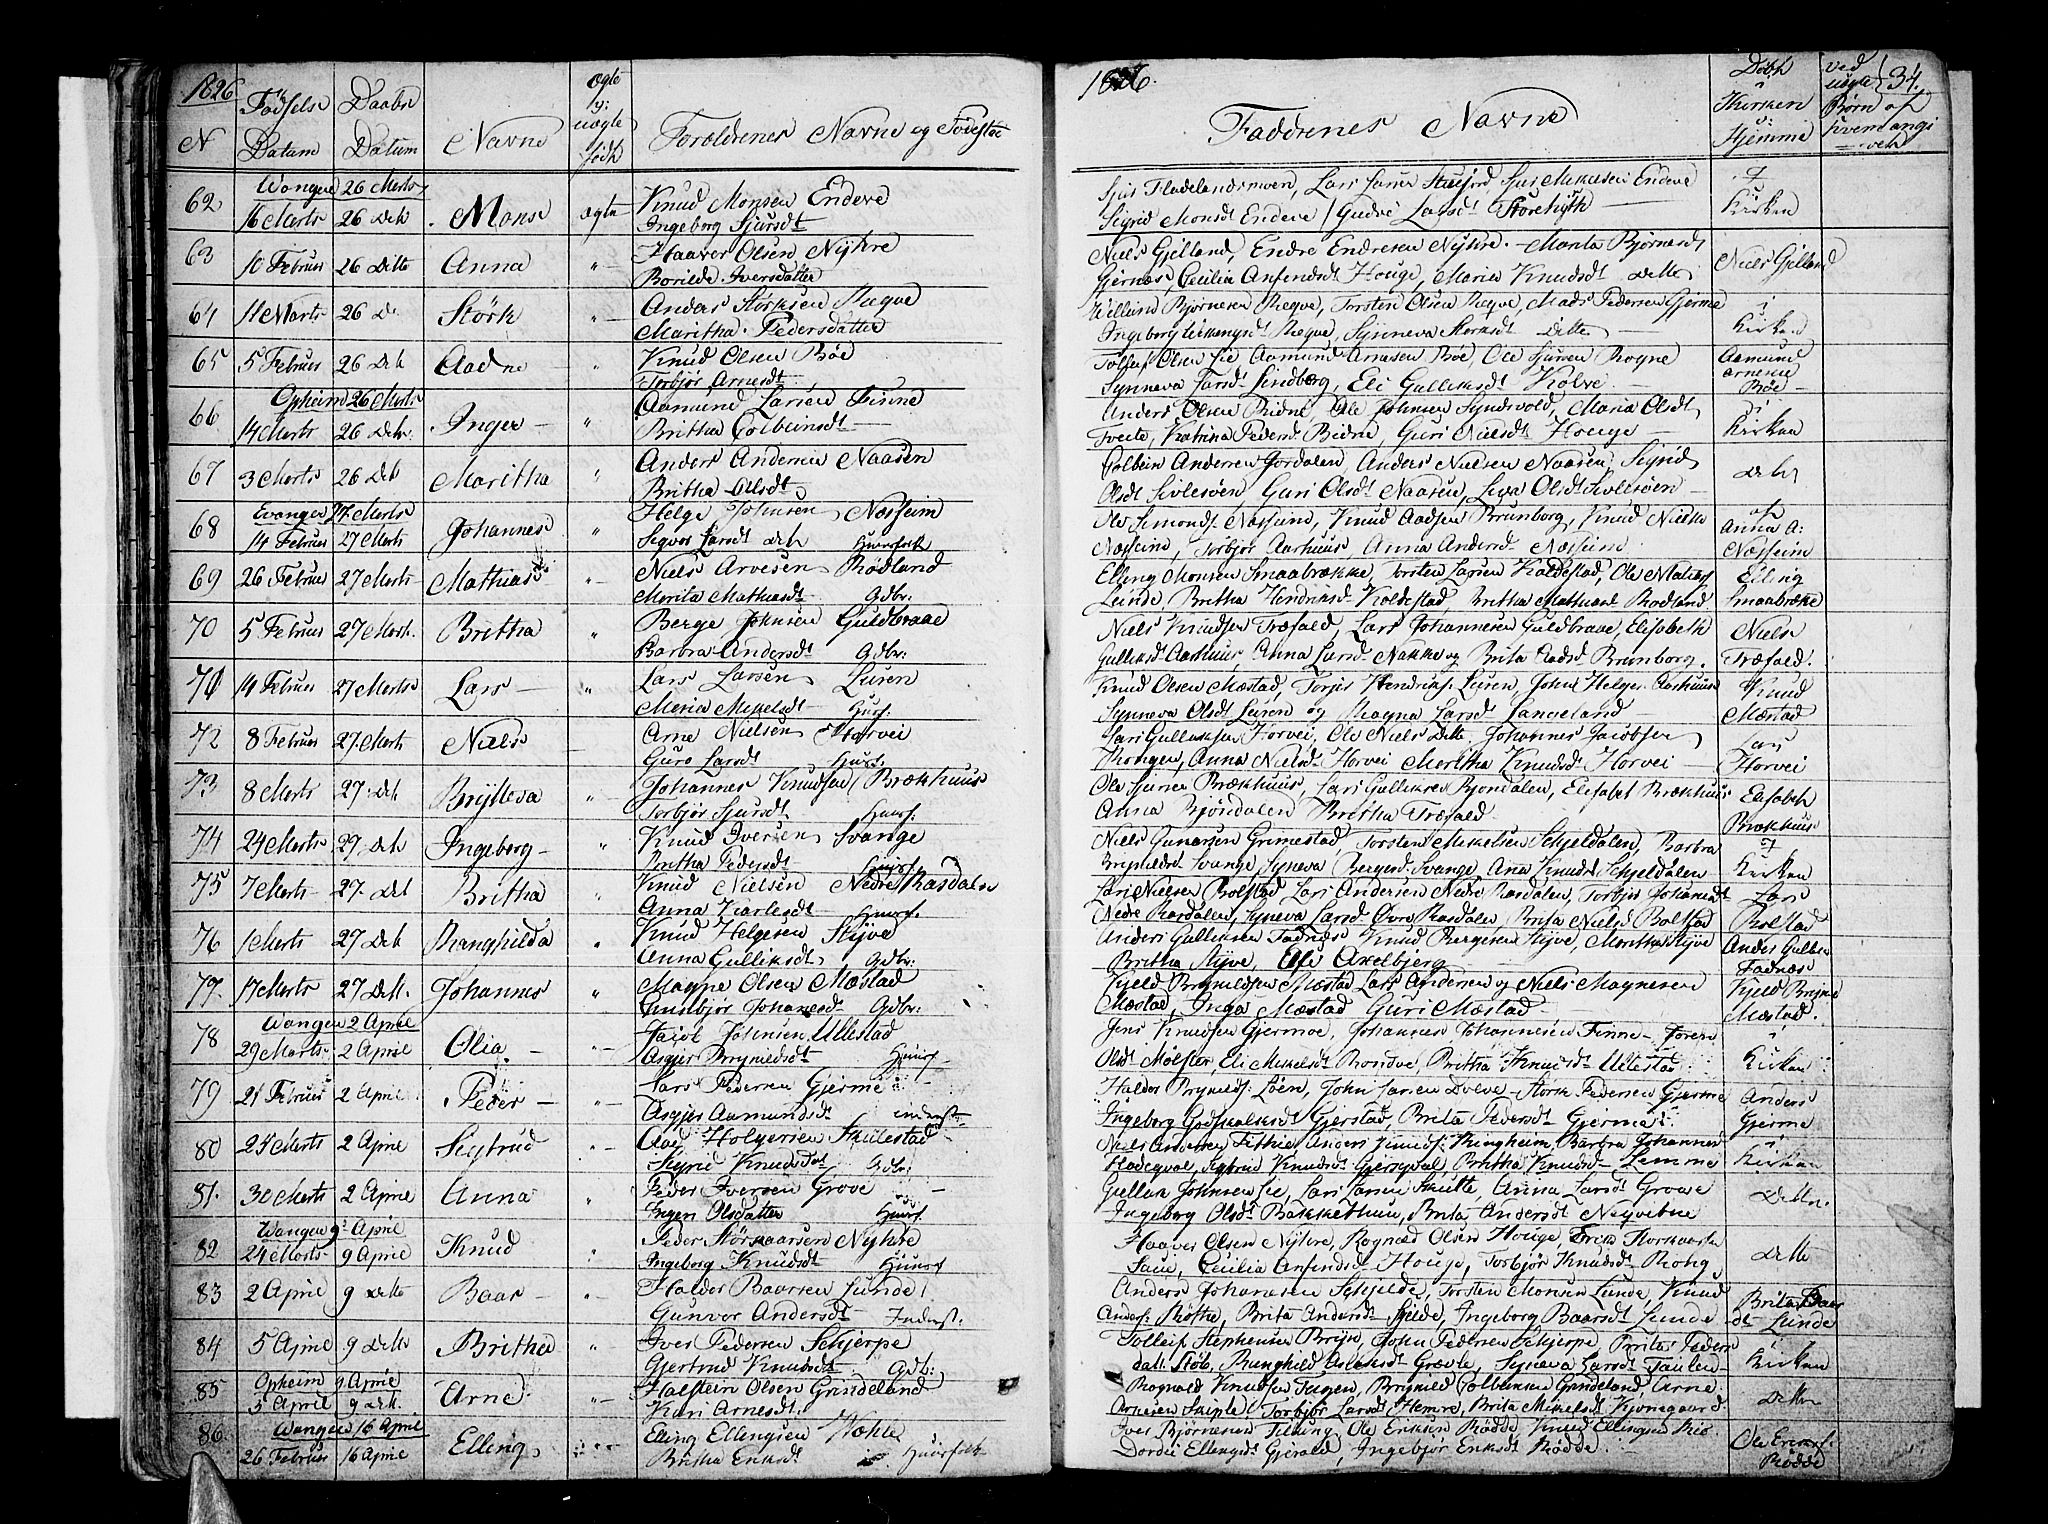 1826
N
Fødsels Datum
Daabs Datum
Navne
ægte og uægte født
Foreldrenes Navne og Fødested
62 Wangen 26 Marts
16 Marts 26 Dito Mons ægte Knud Monsen Endeve
Ingeborg Sjursdt
63 10 Februar 26 Ditto Anna " Haaver Olsen Nykre
Borilde Iversdatter
64 11 Marts 26 Dt Störk " Anders Störksen Ræqve
Maritha Pedersdatter
65 5 Februar 26 Dito Aadne " Knud Olsen Böe
Torbjör Arnesdt
66 Opheim 26 Marts
14 Marts 26 Dito Inger " Aamund Larsen Finne
Britha Colbeinsdt
67 3 Marts 26 Dito Maritha " Anders Andersen Naasen
Britha Olsdt
68 Evanger 27 Marts
14 Februar 27 Marts Johannes " Helge Johnsen Næsheim
Segvor Larsdt Huusfolk
69 26 Februar 27 Marts Mathias " Niels Arvesen Rødland
Marita Mathiasdt Gdbr:
70 5 Februar 27 Marts Britha " Berge Johnsen Guldbraae
Barbra Andersdt Gdbr:
71 14 Februar 27 Marts Lars " Lars Larsen Luren
Maria Mikelsdt Husf.
72 8 Februar 27 Marts Niels Arne Nielsen Horvei
Guro Larsdt Husf.
73 8 Marts 27 Dito Bryteva " Johannes Knudsen Brækhuus
Torbjör Sjursdt Husf.
74 24 Marts 27 Dito Ingeborg " Knud Iversen Svange
Britha Pedersdt Huusf.
75 7 Marts 27 Dito Britha " Knud Nielsen Nedre Rasdalen
Anna Karlesdt Huusf.
76 1 Marts 27 Dito Ranghilda " Knud Helgesen Styve
Anna Gulliksdt Gdbr:
77. 17 Marts 27 Dito Johannes " Magne Olsen Mæstad
Johannesdt Gdbr:
78 Wangen 2 April
29 Marts 2 April Olia Jacob Johnsen Ullestad
Asgjer Brynildsdt Huusf
79 21 Februar 2 April Peder " Lars Pedersen Gjerme
Asgjer Aamundsdt inderst:
80 25 Marts 2 April Sigtrud Aad Holgersen Skulestad
Sigrid Knudsdt Gdbr:
81. 30 Marts 2 April Anna " Peder Iversen Grove
Inger Olsdatter Huusf.
82 Wangen 9 April
24 Marts 9 April Knud " Peder Störkaarsen Nykre
Ingeborg Knudsdt Huusf
83 2 April 9 Ditto Baar " Halder Baarsen Lunde
Gunvor Andersdt Inderst:
84 5 April 9 Ditto Britha " Iver Pedersen Skjerpe
Gjertrud Knudsdt Gdbr:
85 Opheim 9 April
5 April 9 dito Arne " Halstein Olsen Grindeland
Kari Arnesdt
86 Wangen 16 April
26 Februar 16 April Elling " Elling Ellingsen Wæhle
Britha Eriksdt Huusfolk
1826.
Faddernes Navne
Döbt i Kirken i Hjemme
ved uægte Børn af hvem angivet
34.
Sjur Fladelandsmoen, Lars Larsen Sjur Mikelsen Endeve
Sigrid Monsdt Endeve Gudve Larsdt i Kirken
Niels Gjelland, Endre Endresen Nykre, Marita Björnesdt
Gjernæs, Cecilia Anfindsdt Houge, Maria Knudsdt Ditto Niels Gjelland
Björnesen Ræqve, Torsten Olsen Ræqve, Mads Pedersen Gjerme
Ingeborg Ræqve, Synneva Störksdt Ditto i Kirken
Olsen Lie Aamund Arnesen Böe, Ole Sjursen Rogne
Synneva Larsdt Lindberg, Eli Gulliksdt Kolve Aamund Arnesen Böe
Anders Olsen Bidne, Ole Johnsen Syndvold, Maria Olsdt
Tveite, Katrina Pedersdt Bidne, Guri Nielsdt Houge i Kirken
Golbein Andersen Jordalen, Anders Nielsen Naasen, Sigrid
Olsdt Sivlesöen, Guri Olsdt Naasen, Olsdt Sivlesöen Ditto
Ole Simonds. Næsheim, Knud Aadsen Brunborg, Knud Nielsen
Næsheim, Torbjör Aarhuus, Anna Andersdt Næsheim af Anna A: Næsheim
Elling Monsen Smaabrække, Torsten Larsen Koldestad, Ole Matias
Leinde, Britha Hendriksdt Koldestad, Britha Mathiasdt Rödland Elling Smaabræke
Niels Knudsen Træfald, Lars Johannesen Guldbraae, Elisabeth
Gulliksdt Aarhuus, Anna Larsdt Nakke og Brita Aadsdt Brunborg. Niels Træfald.
Knud Olsen Mæstad, Torjer Hendriks. Luren, John Helges. Aarhuus
Synneva Olsdt Luren og Ragna Larsdt Langeland Knud Mæstad
Lars Gulliksen Horvei, Ole Niels Ditto, Johannes Jacobsen
Anna Nielsdt Horvei Maritha Knudsdt Horvei Lars Horvei
Ole Sjursen Brækhuus, Lars Gulliksen Bjordalen, Elisabet Brækhuus
Anna Bjöndalen Britha Træfald Elisabeth Brækhuus
Niels Gunarsen Grimestad, Torsten Mikelsen Skjeldalen, Barbra
Brynildsdt Svange, Synneva Bergesdt Svange, Ana Knudsdt Skjeldalen i Kirken
Lars Nielsen Bolstad, Lars Andersen Nedre Rasdalen, Torbjör Johannesdt
Nedre Rasdalen, Syneva Larsdt Övre Rasdalen, Brita Nielsdt Bolstad Lars Bolstad
Anders Gulliksen Fadnæs Knud Bergesen Styve, Maritha Styve
Britha Styve, Else Axelbjerg Anders Gulliks Fadnæs
Kjeld Brynildsen Mæstad Lars Andersen og Niels Magnesen
Mæstad, Inga Mæstad Guri Mæstad Kjeld Brynild Mæstad.
Jens Knudsen Gjerme, Johannes Johannesen Finne
Olsdt Mölster, Eli Mikelsdt Rondve, Britha Knudsdt Ullestad i Kirken
Halder Brynilds. Löen, John Larsen Dolve Störk Pedersen Gjerme
Ingeborg Godskalksdt Gjerstad, Brita Pedersdt Gjerme Anders Gjerme
Niels Andersen Anders Knuds. Ringheim, Barbra Johannes
Sigtrud Knudsdt Britha Knudsdt Lemme i Kirken
Gullak Johnsen Lie, Lars Larsen Skutle, Anna Larsdt Grove
Ingeborg Olsdt Bakkethun, Brita Andersdt Nyvebne Ditto
Haaver Olsen Nykre, Rognald Olsen Houge, Erik
Saue, Cecilia Anfindsdt Houge, Torbjör Knudsdt Rokq Ditto
Anders Johannesen Skjelde, Torsten Monsen Lunde, Knud
Anders. Brita Andersdt Skjelde, Ingeborg Baarsdt Lunde Brita Baarsdt Lunde
Tolleif Stephensen Bryn, John Pedersen Skjerpe, Brita Peders
datt. Ranghild Grævle, Syneva Larsdt i Kirken
Rognald Knudsen Brynild Colbeinsen Grindeland, Arne
Arnesen Torbjör Larsdt Hemre, Brita Mikelsdt Kjonegaard Ditto
Iver Björnesen Ole Eriksen Rödde, Knud Ellingsen
Dordei Ellingsdt Gjerald, Ingebjör Eriksdt Rödde Ole Eriks. Rödde